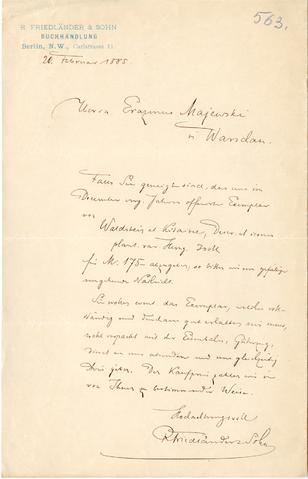 563.
R. FRIEDLÄNDER & SOHN
BUCHHANDLUNG
Berlin, N.W., Carlstrasse 11.
20. Februar 1885.
Herrn Erazmus Majewski
in Warschau.
Falls Sie geneigt sind, das uns im
December vorig. Jahres offerirte Exemplar
von
Waldstein et Kitaibel, Descr. et icones
plant. rar. Hung. 3 voll
für M. 175 abzugeben, so bitten wir um gefällige
umgehende Nachricht.
Sie wollen sonst das Exemplar, welches voll-
ständig und durchaus gut erhalten sein muss,
verpackt mit der Eisenbahn,
direct an uns absenden und uns gleichzeitig
Den Kaufpreis zahlen wir in
von Ihnen zu bestimmender Weise.
Hochachtungsvoll
R Friedländer & Sohn